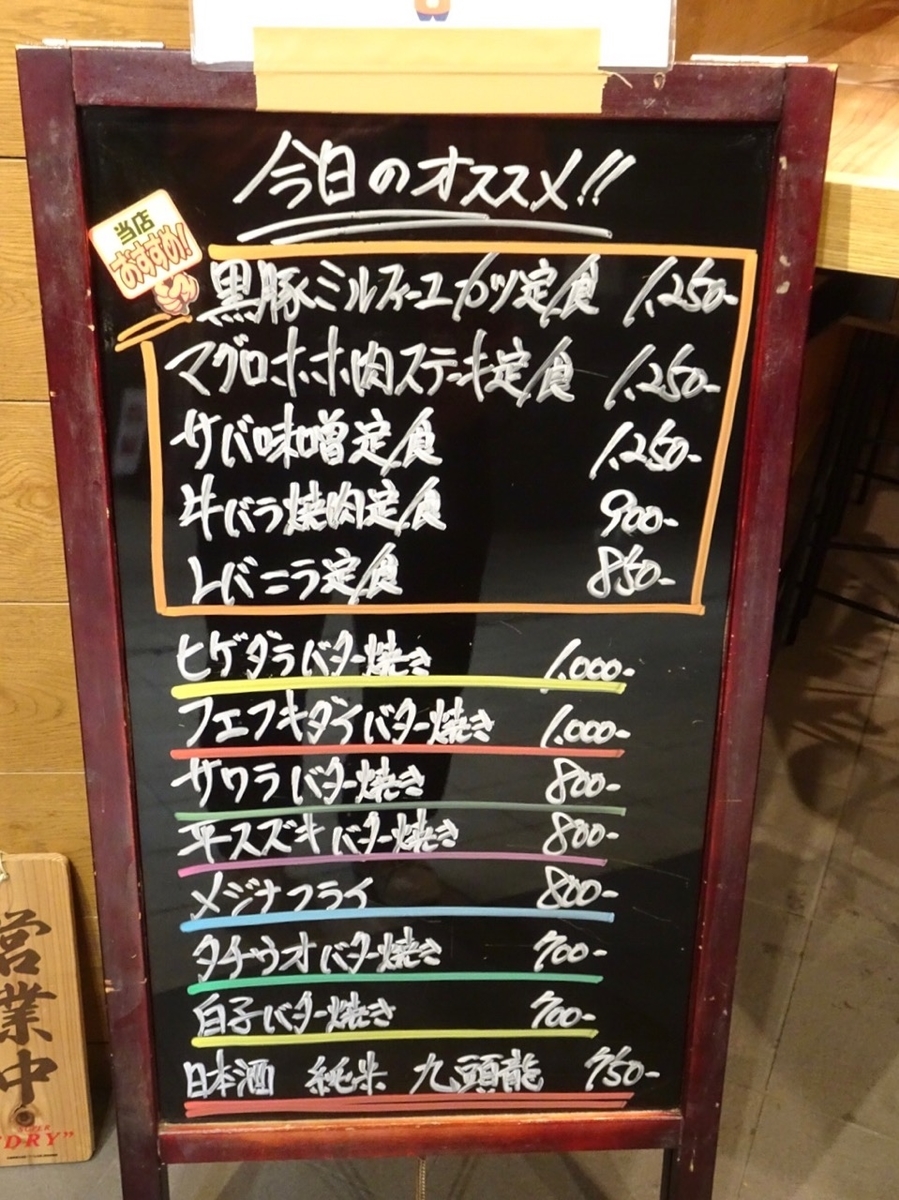 今日のオススメ!!
当店
おすすめ!
黒豚ミルフィーユカツ定食 1,250-
マグロホホ肉ステーキ定食 1,250-
サバ味噌定食 1,250-
牛バラ焼肉定食 900-
レバニラ定食 850-
ヒゲダラバター焼き 1,000-
フエフキダイバター焼き 1,000-
サワラバター焼き 800-
平スズキバター焼き 800-
メジナフライ 800-
タチウオバター焼き 700-
白子バター焼き 700-
日本酒 純米 九頭龍 750-
営業中
DRY"